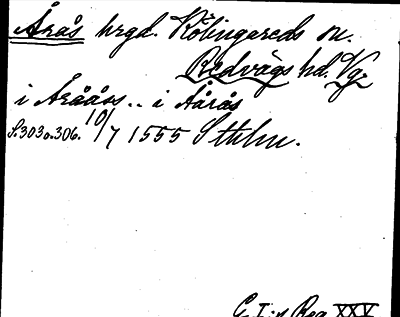 Årås hrgd. Kölingareds sn.
Redvägs hd. Vg.
i Åråås .. i Åårås
S. 303 o. 306. 10/7 1555 Sthlm.
G. I:s Reg XXV